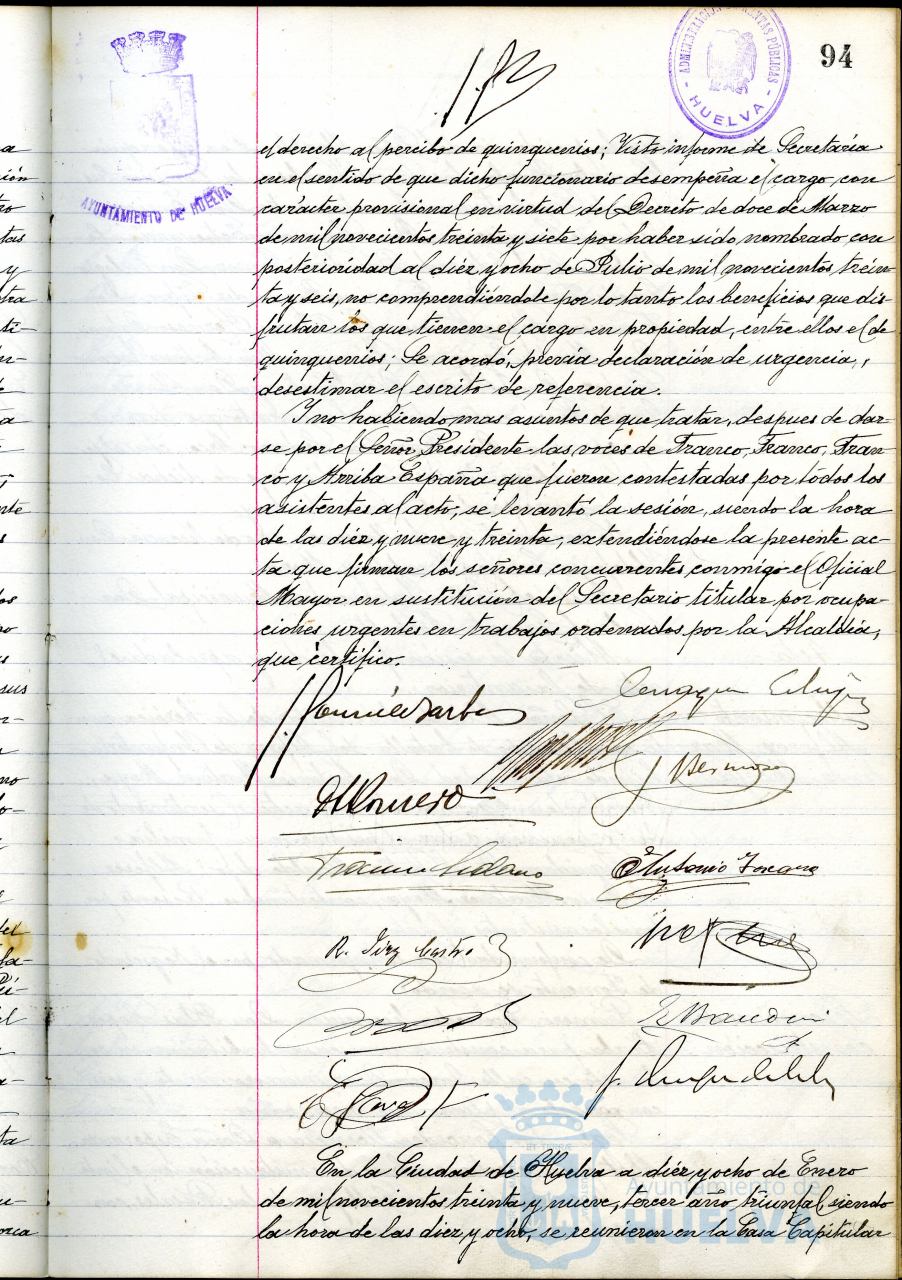 94
ADMINISTRACIÓN DE RENTAS PÚBLICAS
- HUELVA -
AYUNTAMIENTO DE HUELVA
el derecho al percibo de quinquenios; Visto informe de Secretaría
en el sentido de que dicho funcionario desempeña el cargo con
carácter provisional en virtud del Decreto de doce de Marzo
de mil novecientos treinta y siete por haber sido nombrado con
posterioridad al diéz y ocho de Julio de mil novecientos tréin-
ta y seis, no comprendiéndole por lo tanto los beneficios que dis-
frutan los que tienen el cargo en propiedad, entre ellos el de
quinquenios; Se acordó, prévia declaración de urgencia,
desestimar el escrito de referencia.
Y no habiendo mas asuntos de que tratar, despues de dar-
se por el Señor Presidente las voces de Franco, Franco, Fran-
co y Arriba España que fueron contestadas por todos los
asistentes al acto, se levantó la sesión, siendo la hora
de las diéz y nueve y treinta, extendiéndose la presente ac-
ta que firman los señores concurrentes conmigo el Oficial
Mayor en sustitución del Secretario titular por ocupa-
ciones urgentes en trabajos ordenados por la Alcaldía,
que certifico.
J. Bermoso
Romero
Antonio
R. Diez Castro
En la Ciudad de Huelva a diéz y ocho de Enero
de mil novecientos treinta y nueve, tercer año triunfal, siendo
la hora de las diéz y ocho, se reunieron en la Casa Capitular
Ayuntamiento de
HUELVA